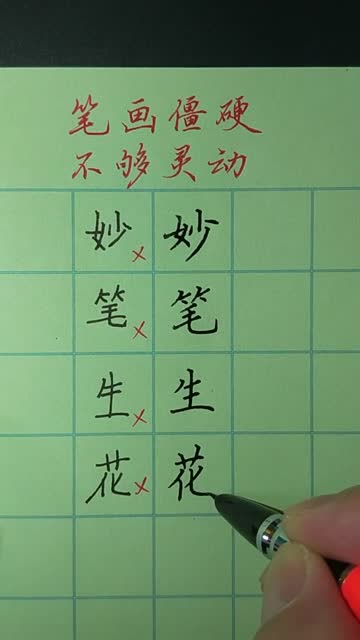 笔画僵硬
不够灵动
妙×妙
笔×笔
生×生
花×花